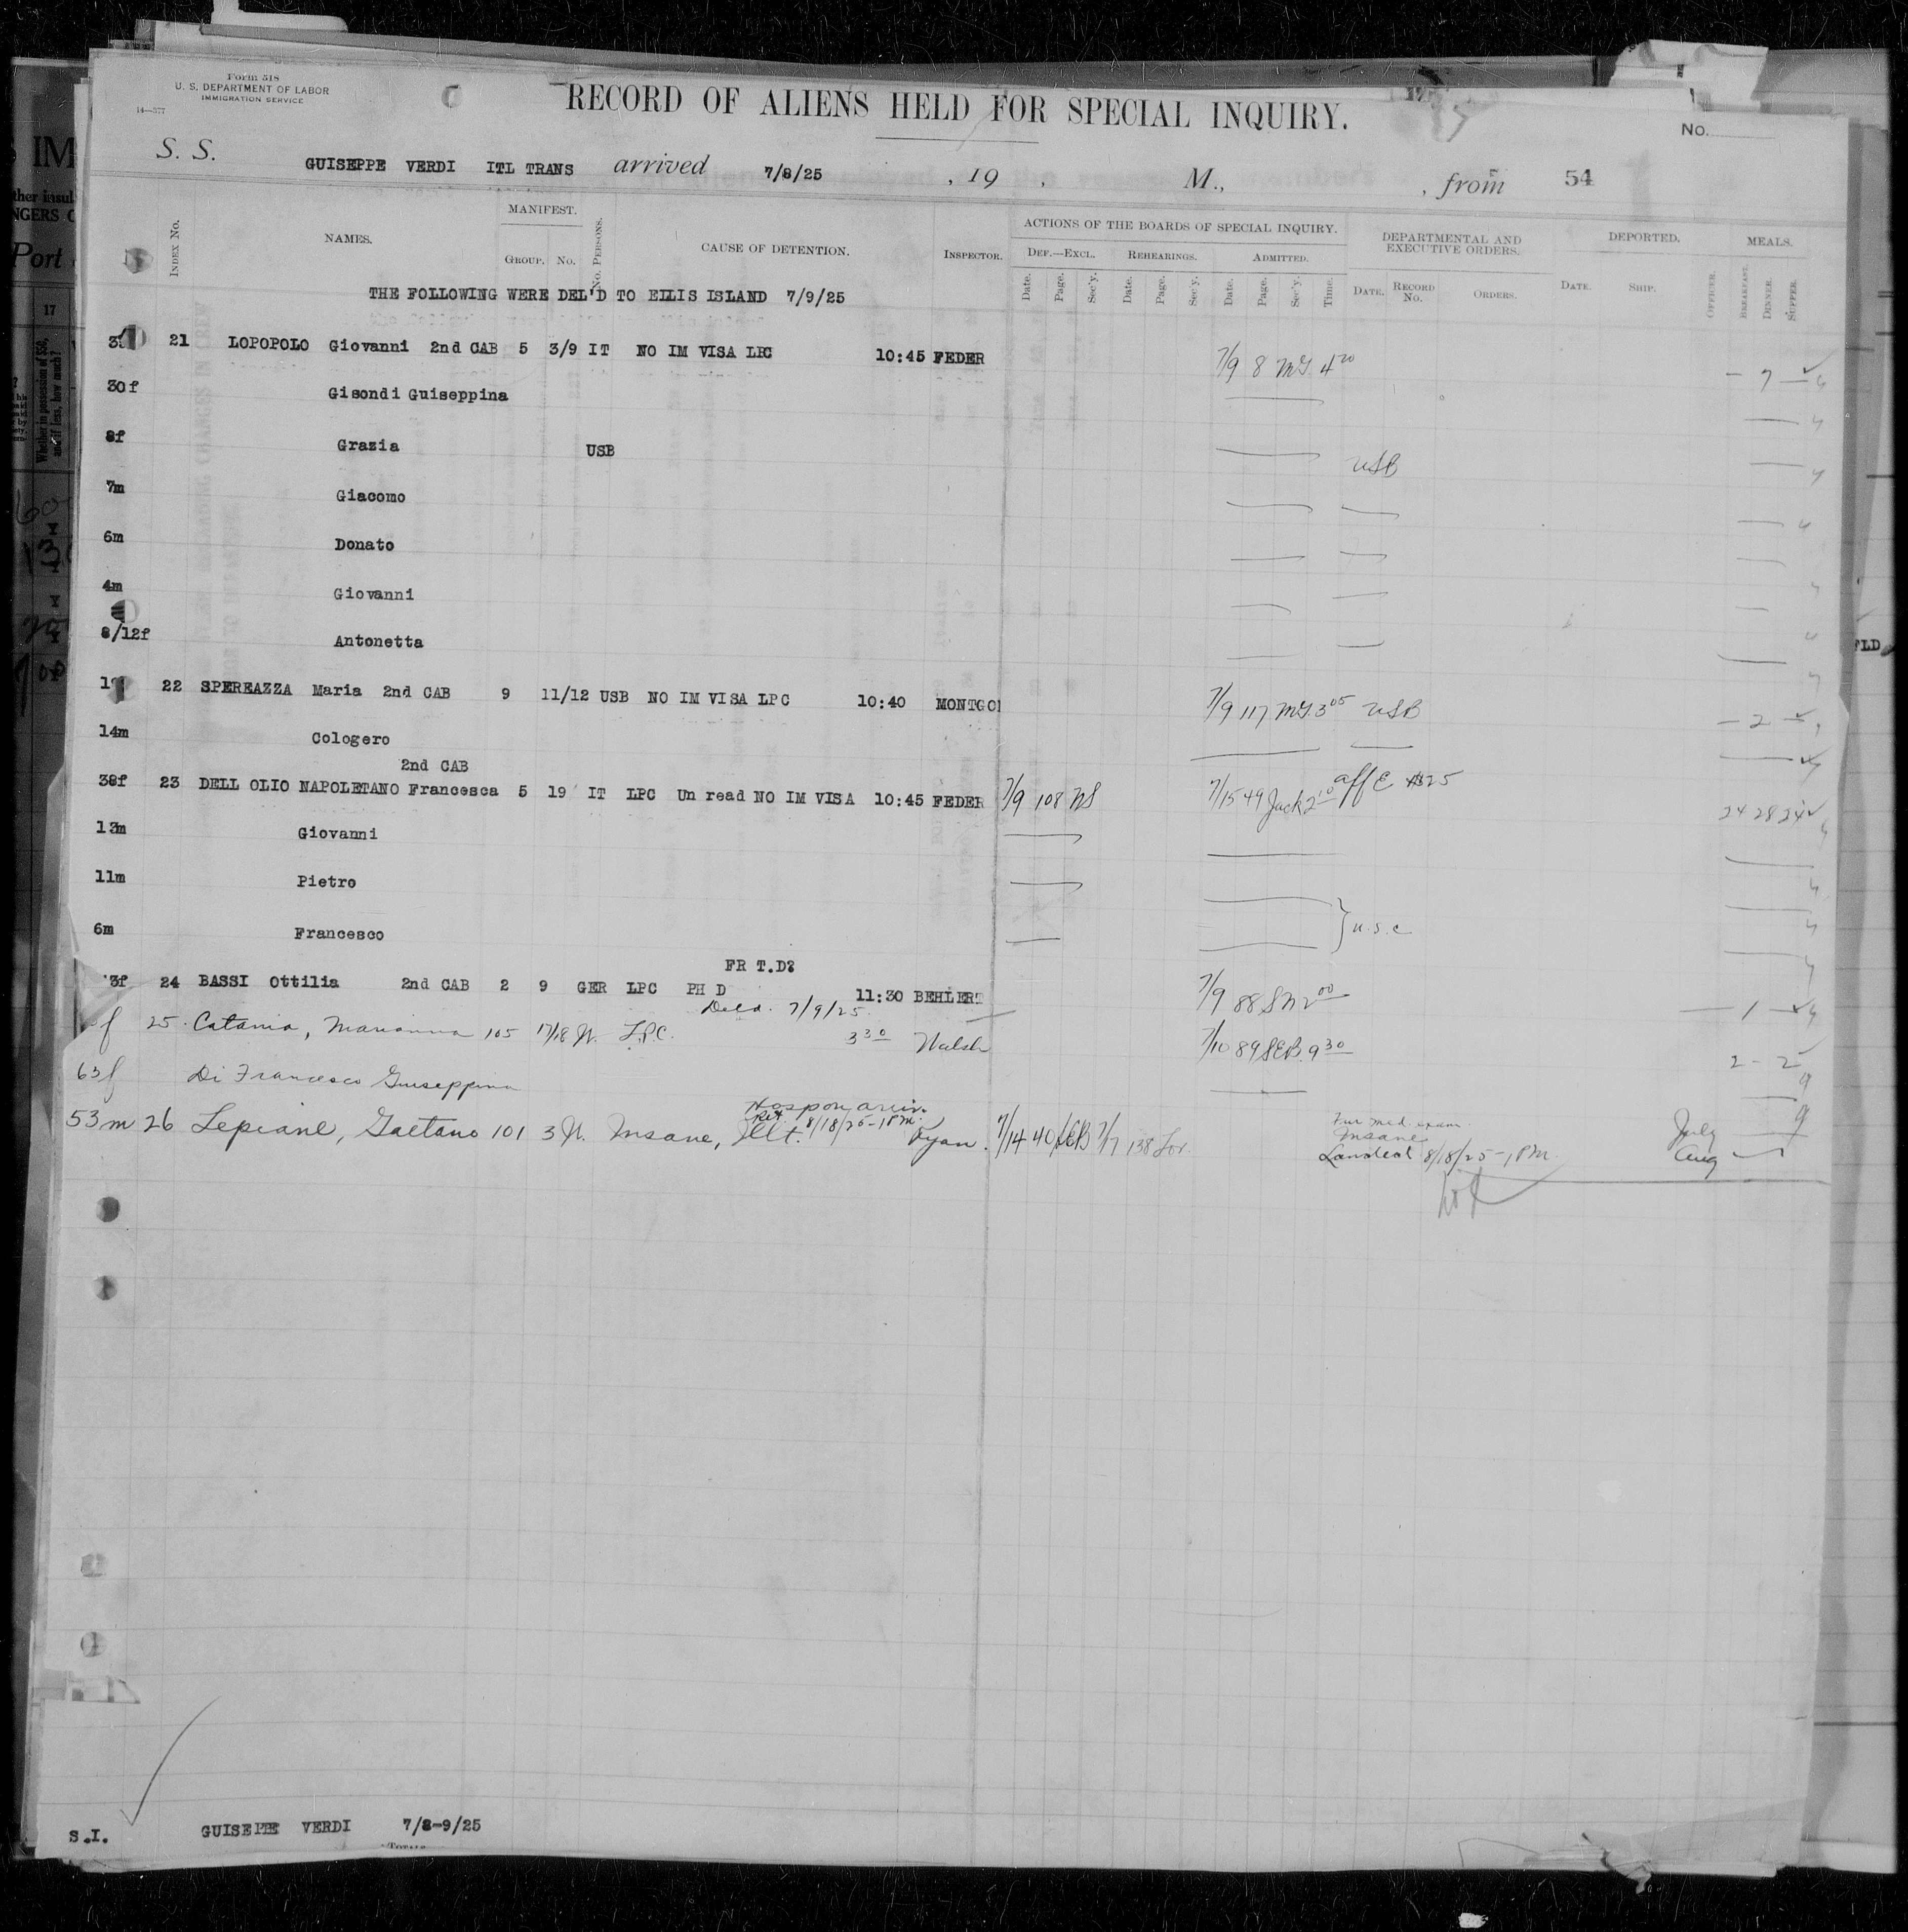 Form 518
U. S. DEPARTMENT OF LABOR
IMMIGRATION SERVICE
14—377
RECORD OF ALIENS HELD FOR SPECIAL INQUIRY.
No.
S. S. GUISEPPE VERDI ITL TRANS arrived 7/8/25 , 19 , M., , from 54
INDEX No. NAMES. MANIFEST. GROUP. No. No. PERSONS. CAUSE OF DETENTION. INSPECTOR. ACTIONS OF THE BOARDS OF SPECIAL INQUIRY. DEF.—EXCL. REHEARINGS. ADMITTED. DEPARTMENTAL AND EXECUTIVE ORDERS. DEPORTED. MEALS.
Date. Page. Sec'y. Date. Page. Sec'y. Date. Page. Sec'y. Time. DATE. RECORD No. ORDERS. DATE. SHIP. OFFICER. BREAKFAST. DINNER. SUPPER.
THE FOLLOWING WERE DEL'D TO ELLIS ISLAND 7/9/25
21 LOPOPOLO Giovanni 2nd CAB 5 3/9 IT NO IM VISA LPC 10:45 FEDER 7/9 8 MG 4 20 — 7 —
30f Gisondi Guiseppina
8f Grazia USB USB
7m Giacomo
6m Donato
4m Giovanni
8/12f Antonetta
22 SPEREAZZA Maria 2nd CAB 9 11/12 USB NO IM VISA LPC 10:40 MONTGO 7/9 117 MG 3 05 USB — 2 —
14m Cologero
2nd CAB
38f 23 DELL OLIO NAPOLETANO Francesca 5 19 IT LPC Un read NO IM VISA 10:45 FEDER 7/9 108 NS 7/15 49 Jack 2 10 aff E 24 28 24
13m Giovanni
11m Pietro
6m Francesco u.s.c
FR T.D?
3f 24 BASSI Ottilia 2nd CAB 2 9 GER LPC PH D 11:30 BEHLERT 7/9 88 SN 2 00 — 1 —
Deld. 7/9/25
f 25 Catania, Marianna 105 17/18 It. L.P.C. 3 30 Walsh 7/10 89 SEB. 9 30 2 - 2
63f Di Francesco Guiseppina
Hosp on arriv.
8/18/25-1 PM.
53m 26 Lepiane, Gaetano 101 3 It. Insane, Illt. Ryan. 7/14 40 SEB 138
Fur med. exam.
Insane
Landed 8/18/25-1 PM.
July
Aug
S.I. GUISEPPE VERDI 7/8-9/25
TOTALS